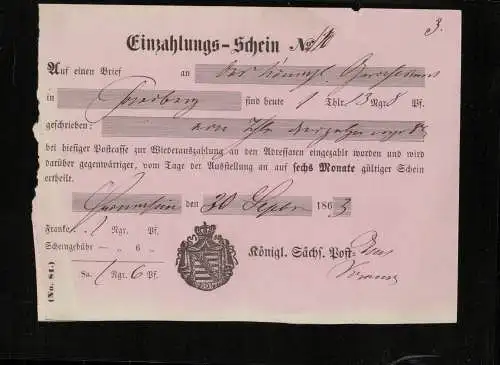 3.
Einzahlungs-Schein No.
Auf einen Brief an das Königl.
in sind heute 1 Thlr. 13 Ngr. 8 Pf.
geschrieben: ein Thlr dreizehn ngr 8
bei hiesiger Postcasse zur Wiederauszahlung an den Adressaten eingezahlt worden und wird
darüber gegenwärtiger, vom Tage der Ausstellung an auf sechs Monate gültiger Schein
ertheilt.
den 20 Septbr 1863
Franko 1 Ngr. Pf.
Scheingebühr — „ 6 „
Sa. 1 Ngr. 6 Pf.
Königl. Sächs. Post-
(No. 81.)